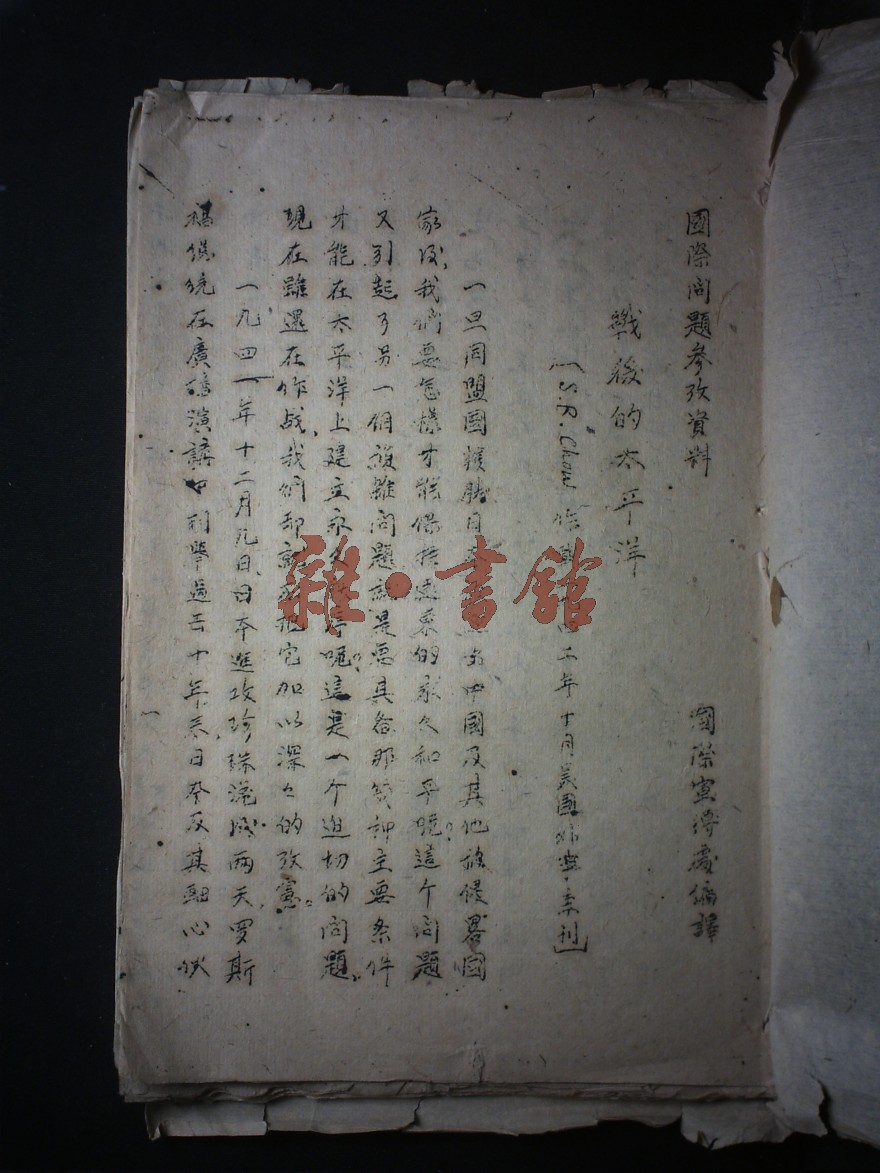 國際问題参攷資料 國際宣傳處編譯
戰後的太平洋
[S.R.Chow 作 二年十月美國外交季刊]
一旦同盟國獲勝日 中國及其他被侵畧國
家後,我們要怎樣才能保持遠東的永久和平呢?這个问題
又引起了另一個複雜问題就是要具备那幾种主要条件
才能在太平洋上建立永久 序呢?這是一个迫切的问題,
現在雖還在作战,我们却 把它加以深深的攷慮。
一九四一年十二月九日,日本進攻珍珠港後兩天,罗斯
福總統在廣播演講中列舉過去十年来日本及其軸心伙
雜·書館